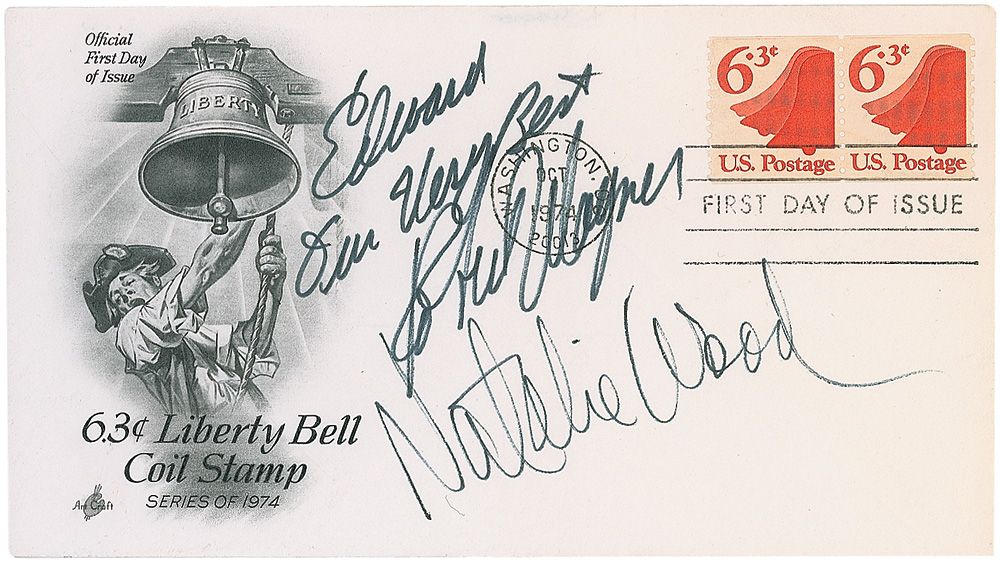 Official
First Day
of Issue
LIBERTY
6.3¢ Liberty Bell
Coil Stamp
SERIES OF 1974
Art Craft
Edward
Our Very Best
Robert J Wagner
Natalie Wood
WASHINGTON, D.C.
OCT
1974
20013
6.3¢
U.S. Postage
6.3¢
U.S. Postage
FIRST DAY OF ISSUE